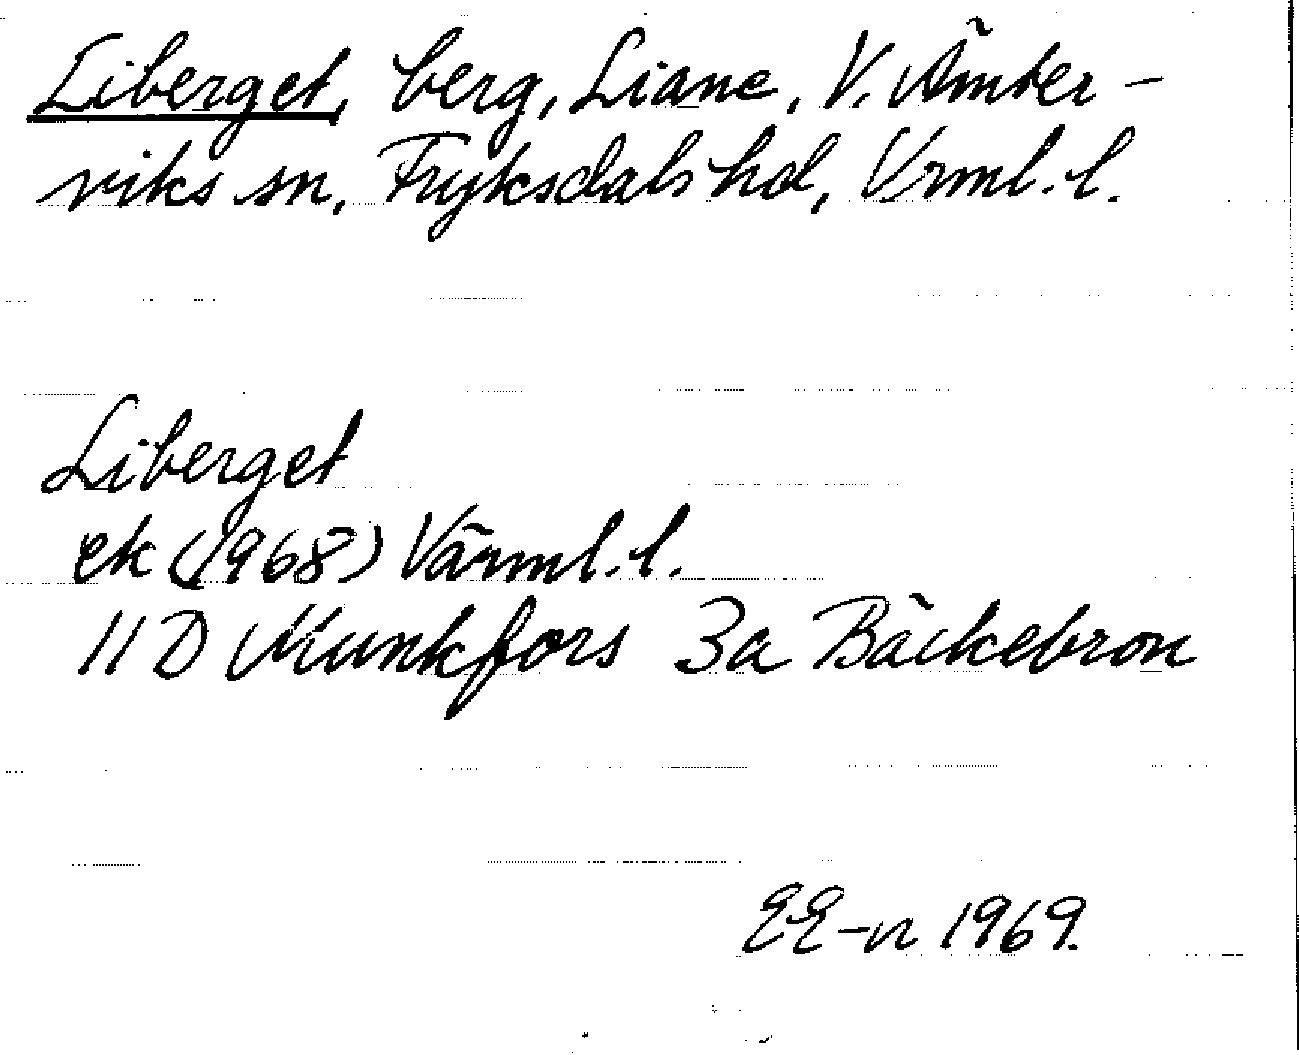 Liberget, berg, Liane, V. Ämter-
viks sn, Fryksdals hd, Vrml. l.
Liberget
ek (1968) Värml. l.
11 D Munkfors 3a Bäckebron
EE-n 1969.